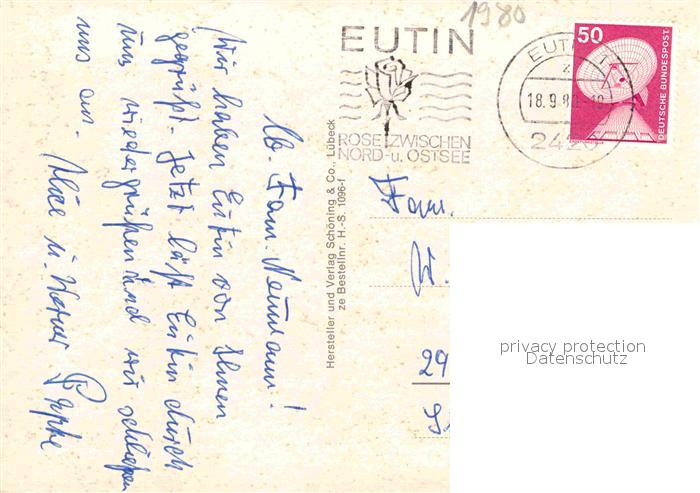 1980
EUTIN
ROSE ZWISCHEN
NORD- u. OSTSEE
EUTIN 1
z
18.9.80-18
2420
50
DEUTSCHE BUNDESPOST
Lb. Fam. Neumann!
Wir haben Eutin von Ihnen
gegrüßt. Jetzt läßt Eutin durch
uns wiedergrüßen und wir schließen
uns an. Alice u. Werner
Hersteller und Verlag Schöning & Co., Lübeck
ze Bestellnr. H.-S. 1096-f
Fam.
29
privacy protection
Datenschutz